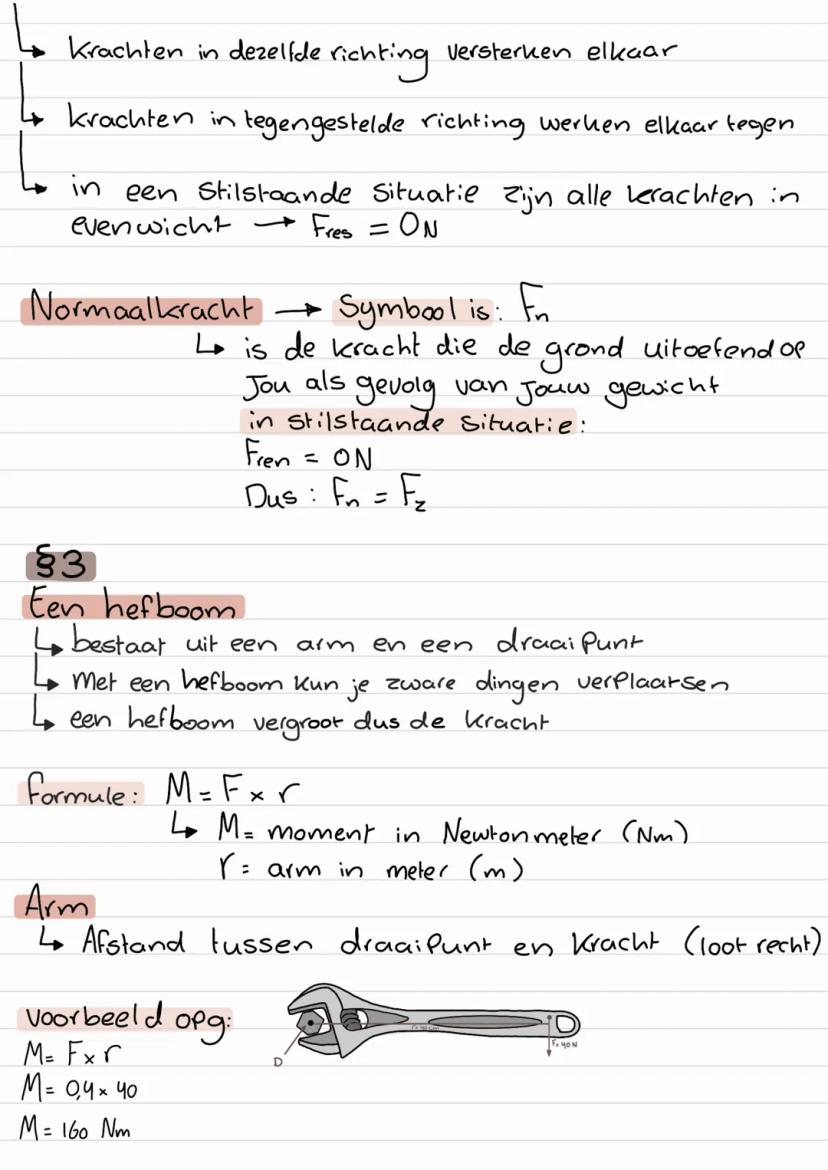 ↳ krachten in dezelfde richting versterken elkaar
↳ krachten in tegengestelde richting werken elkaar tegen
↳ in een stilstaande situatie zijn alle krachten in
evenwicht → Fres = 0N
Normaalkracht → Symbool is: Fn
↳ is de kracht die de grond uitoefend op
Jou als gevolg van jouw gewicht
in stilstaande situatie:
Fren = 0N
Dus: Fn = Fz
§3
Een hefboom
↳ bestaat uit een arm en een draaipunt
↳ Met een hefboom kun je zware dingen verplaatsen
↳ een hefboom vergroot dus de kracht
formule: M = F x r
↳ M = moment in Newtonmeter (Nm)
r = arm in meter (m)
Arm
↳ Afstand tussen draaipunt en kracht (loot recht)
voorbeeld opg:
r = 40 cm
F = 40N
D
M = F x r
M = 0,4 x 40
M = 160 Nm